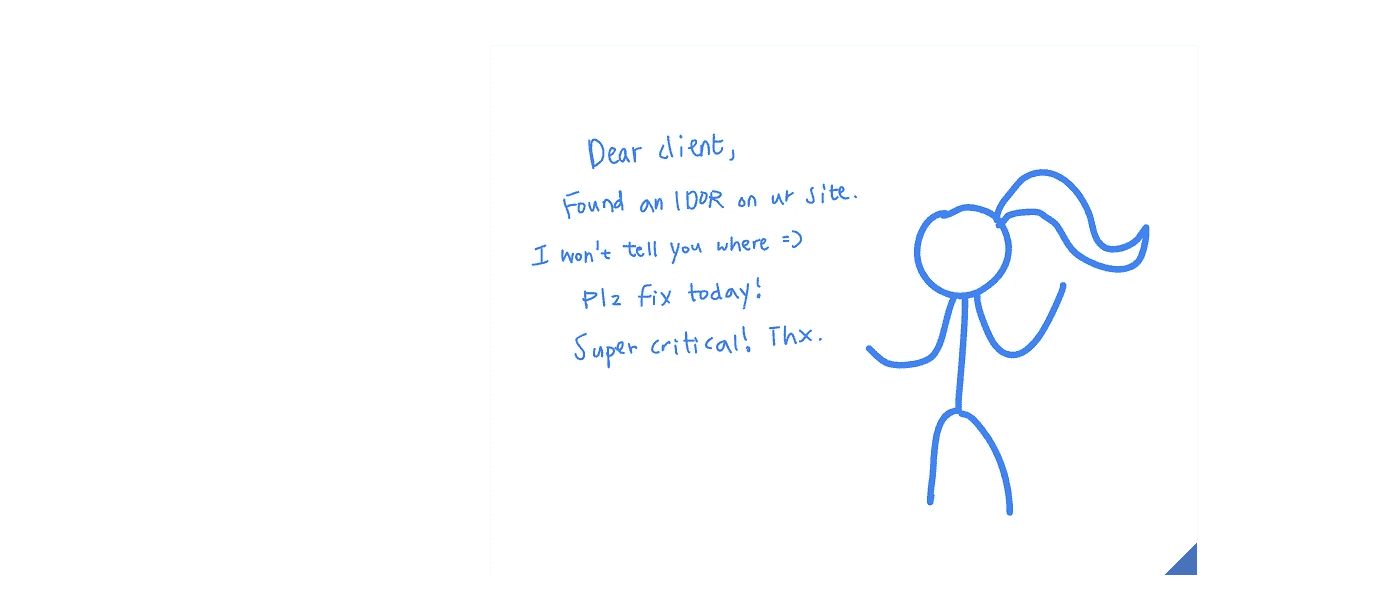 Dear client,
Found an IDOR on ur site.
I won't tell you where =)
Plz fix today!
Super critical! Thx.